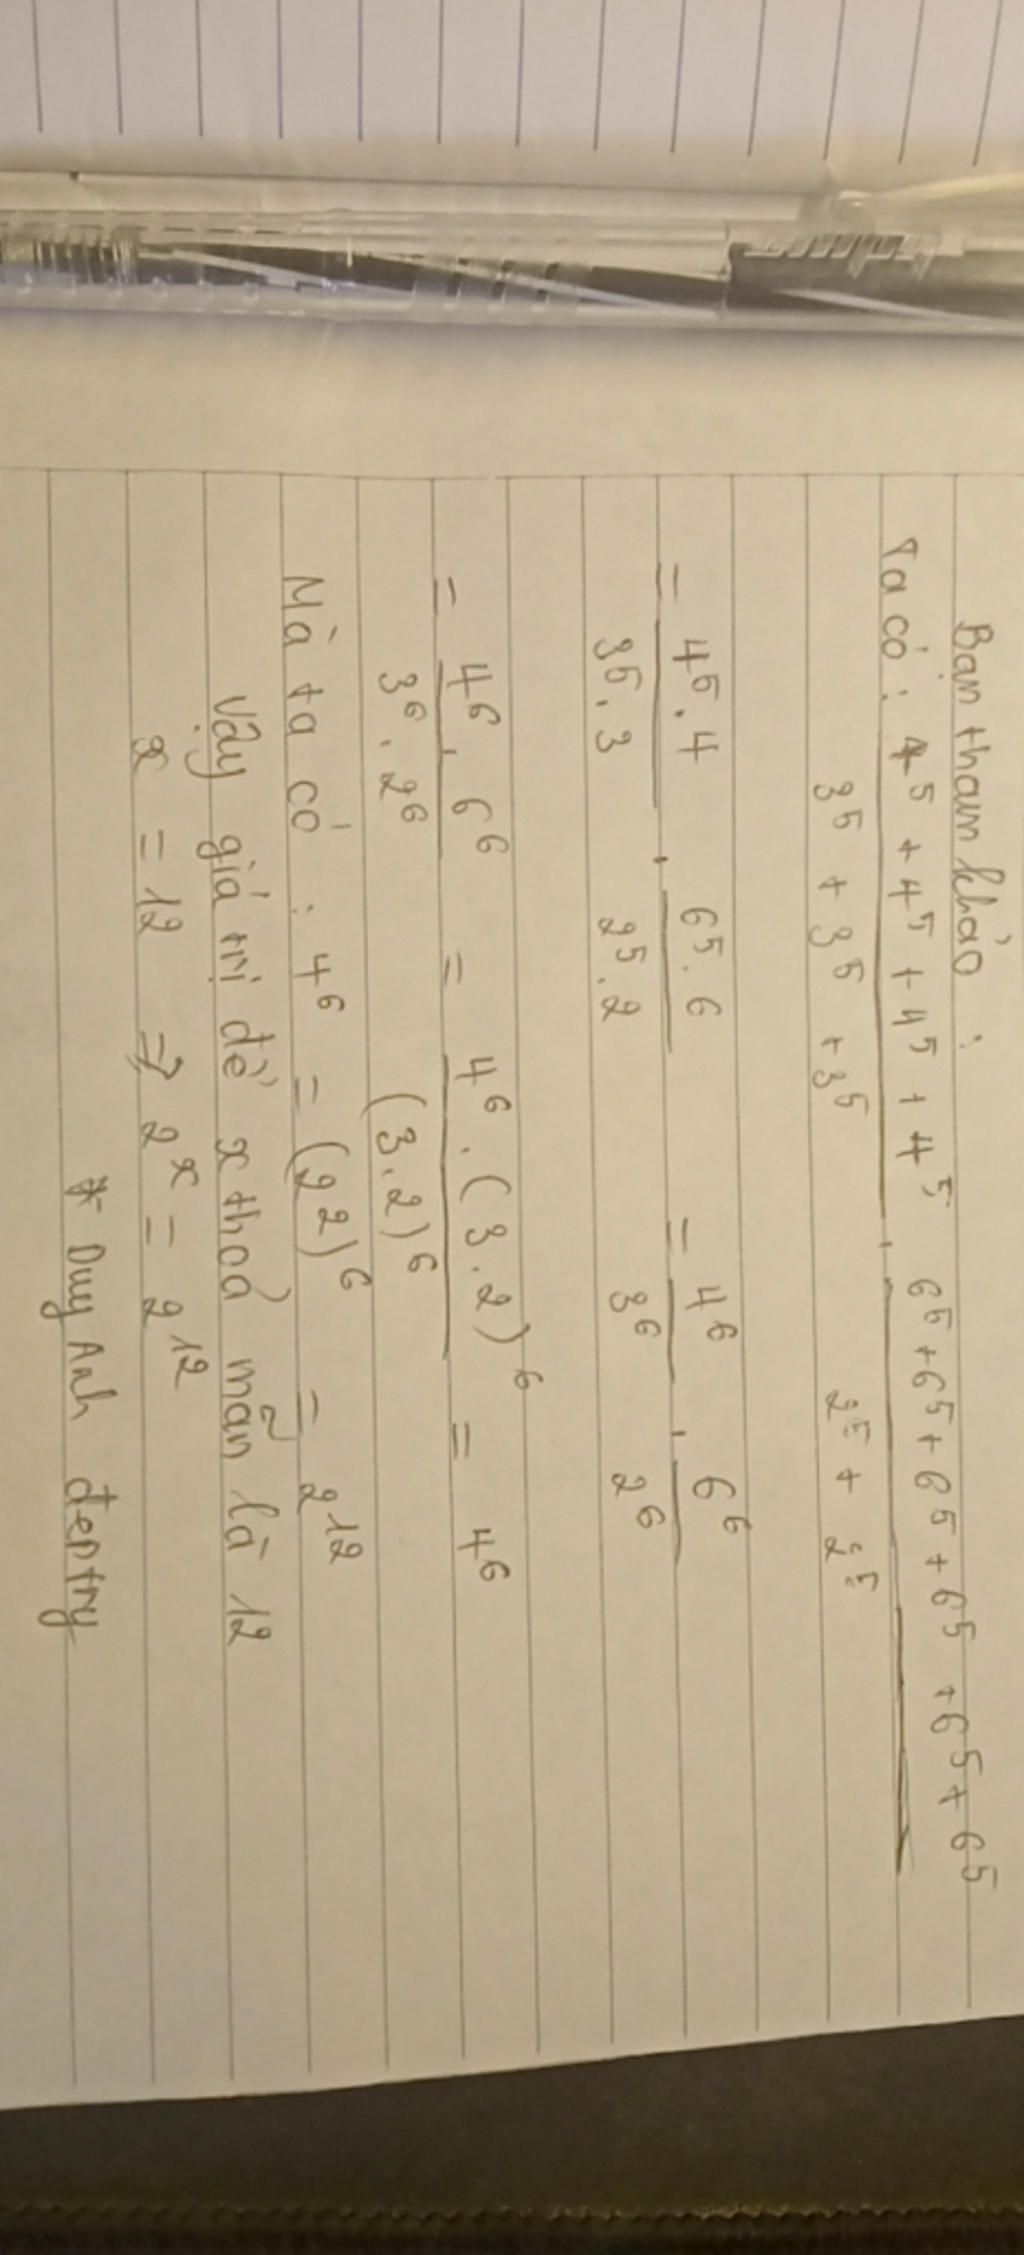 Bạn tham khảo :
Ta có : 4⁵ + 4⁵ + 4⁵ + 4⁵ / 3⁵ + 3⁵ + 3⁵ . 6⁵ + 6⁵ + 6⁵ + 6⁵ + 6⁵ + 6⁵ / 2⁵ + 2⁵
= 4⁵ . 4 / 3⁵ . 3 . 6⁵ . 6 / 2⁵ . 2 = 4⁶ / 3⁶ . 6⁶ / 2⁶
= 4⁶ . 6⁶ / 3⁶ . 2⁶ = 4⁶ . (3 . 2)⁶ / (3 . 2)⁶ = 4⁶
Mà ta có : 4⁶ = (2²)⁶ = 2¹²
Vậy giá trị để x thoả mãn là 12
x = 12 => 2ˣ = 2¹²
* Duy Anh deptry